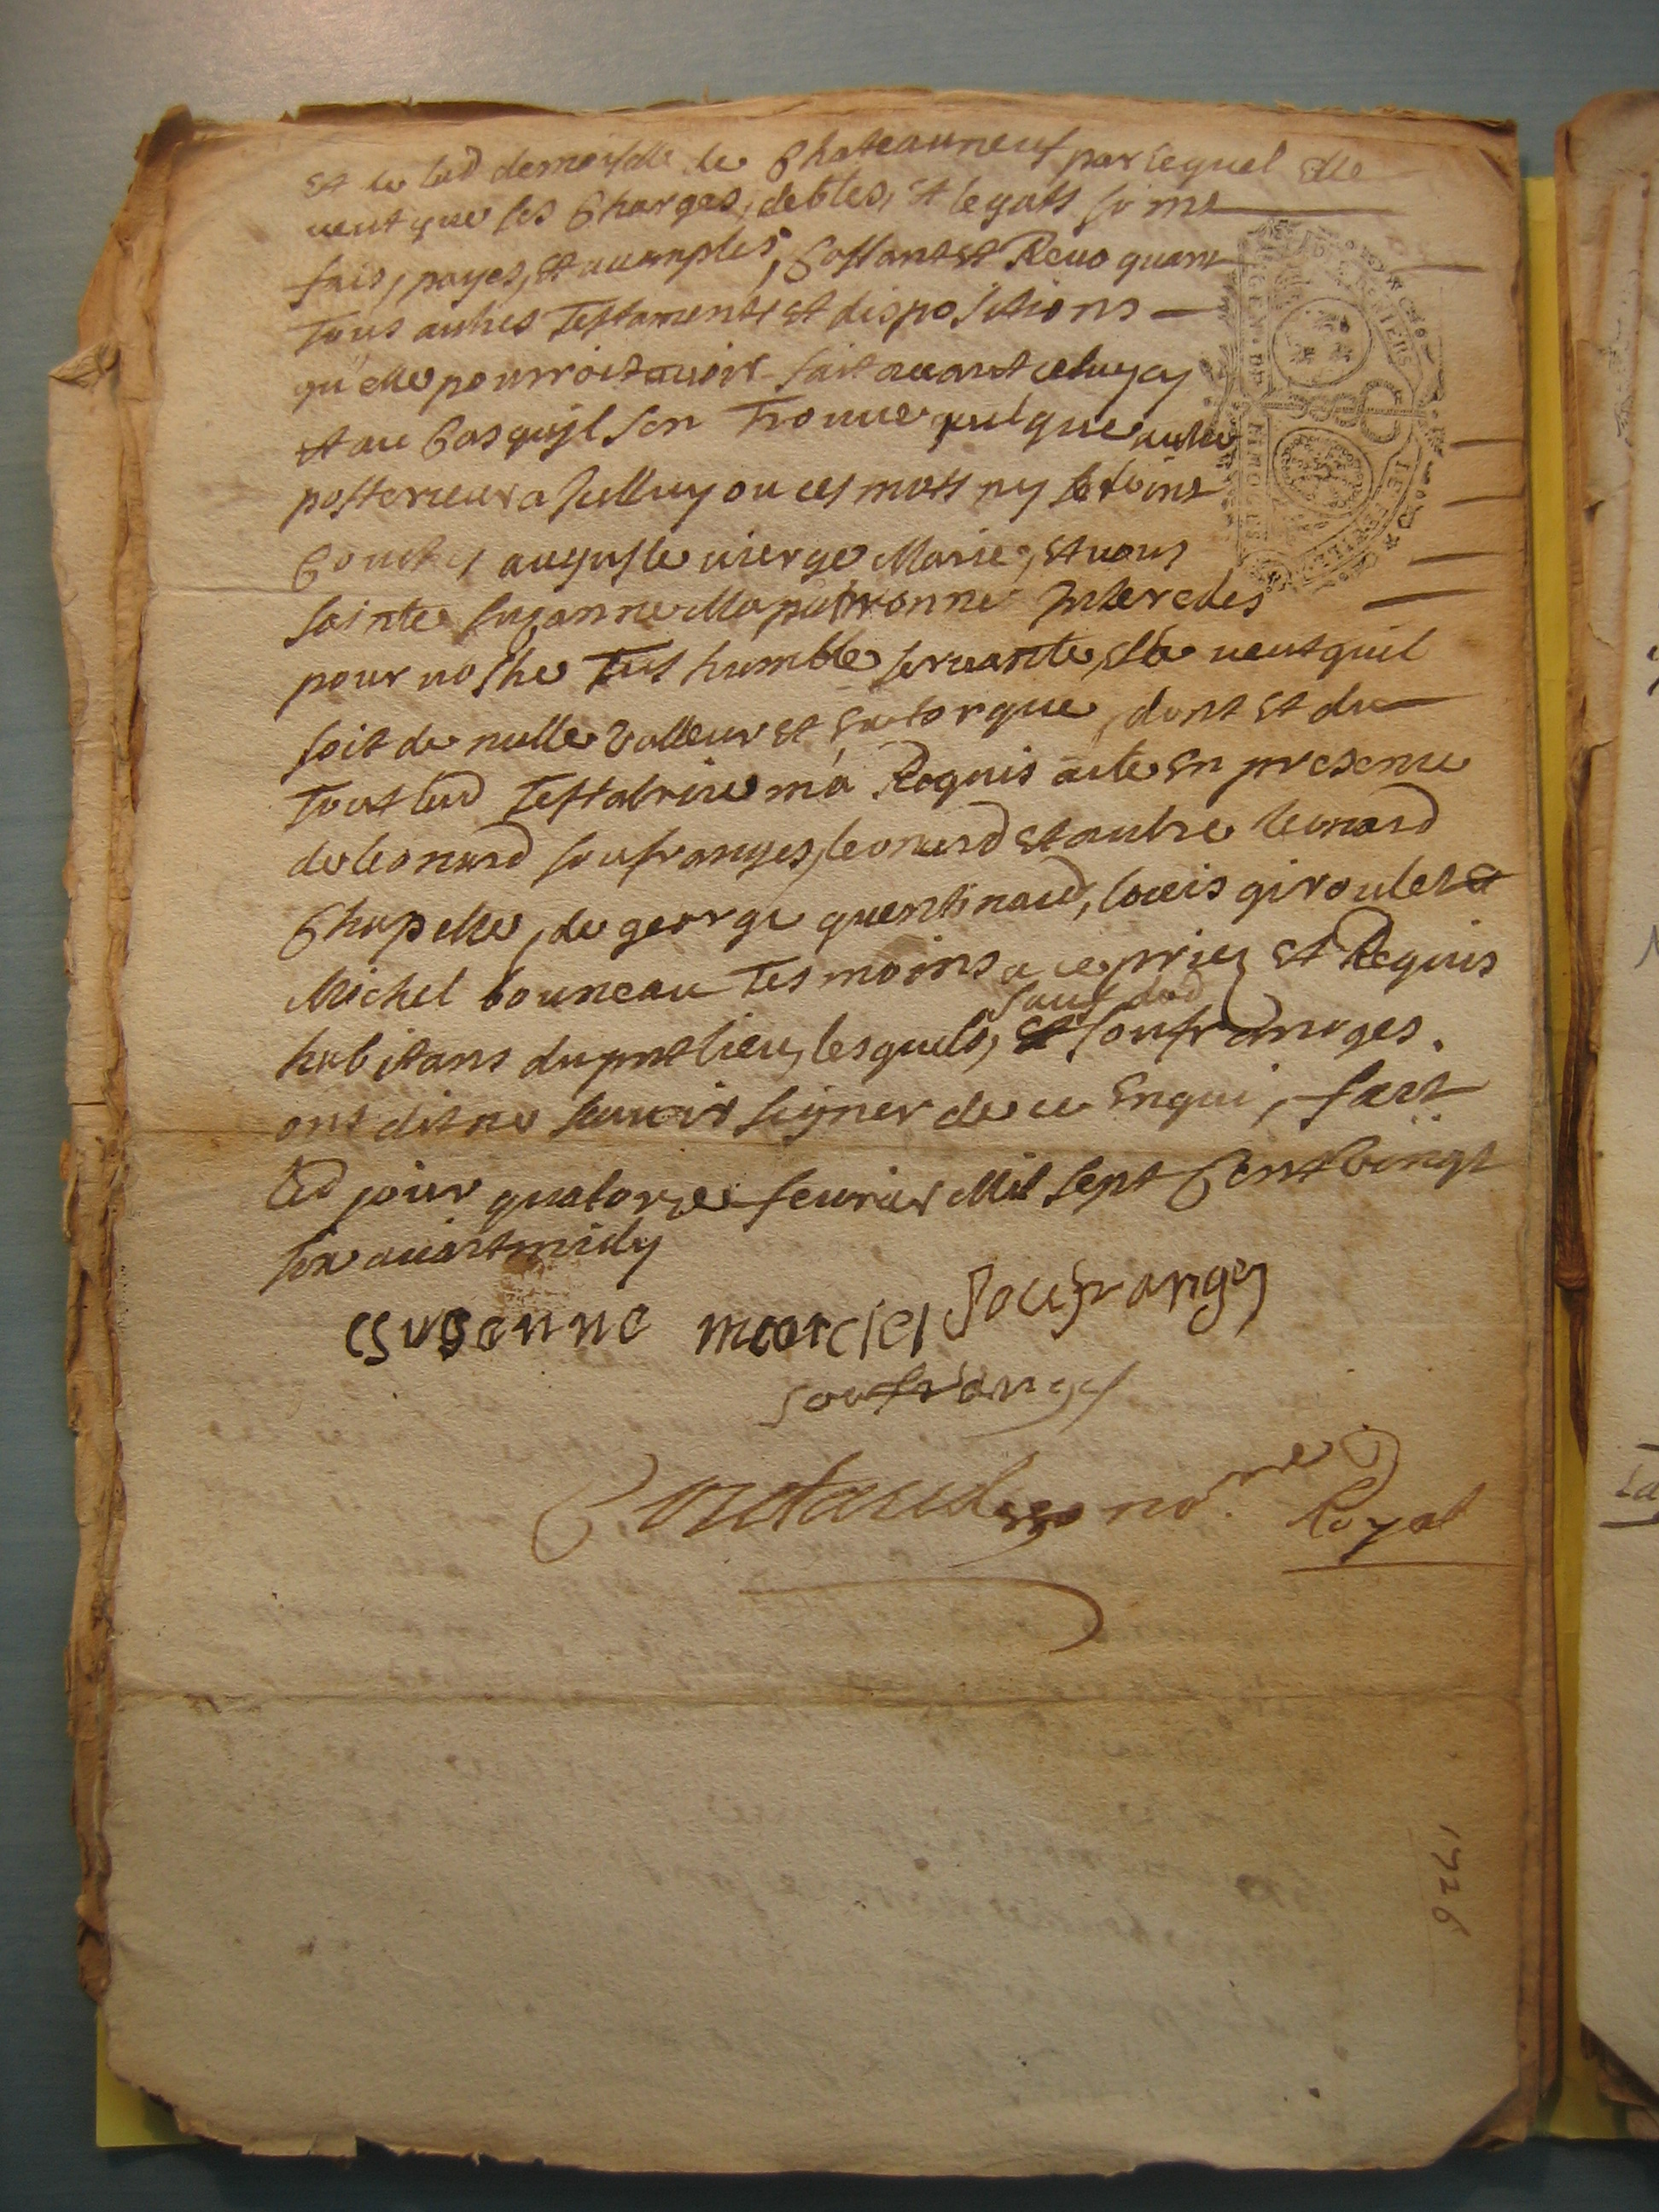 et le lad demoiselle de Chateauneuf par lequel elle
veut que ses Charges, debtes, et legats soint
fais, payes, et acomplis, Cassant et Revoquant
Tous autres Testaments et dispositions
qu'elle pourroit avoir fait avant celuy cy
et au Cas quil sen Trouve quelque autre
posterieur a Icelluy ou ces mots ny seroint
Couchés auguste vierge Marie, et vous
sainte suzanne Ma patronne Intercedes
pour vostre Tres humble servante, elle veut quil
soit de nulle Valleur et Extorque, dont et du
Tout lad Testatrice m'a Requis acte En presence
de leonard soufranges, leonard et autre leonard
Chapelle, de george quentinaud, louis giroulet et
Michel bouneau Tesmoins a ce priez et Requis
sauf lad
habitans du pnt lieu, lesquels, et soufranges.
ont dit ne scavoir signer de ce Enqui, fait
led jour quatorze fevrier Mil sept Cent Vingt
six avant midy
susanne marciel Soufranges
soufranges
no.re Royal
GEN. DE LIMOGES
1726